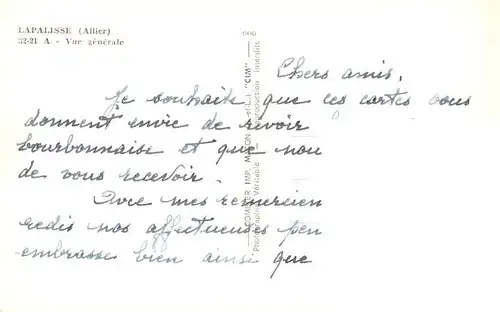 LAPALISSE (Allier)
32-21 A - Vue générale
Chers amis,
Je souhaite que ces cartes vous
donnent envie de revoir
bourbonnaise et que nou
de vous recevoir.
Avec mes remercien
redis nos affectueuses pen
embrasse bien ainsi que
COMBIER IMP. MACON "CIM"
Photographie Véritable - Reproduction Interdite